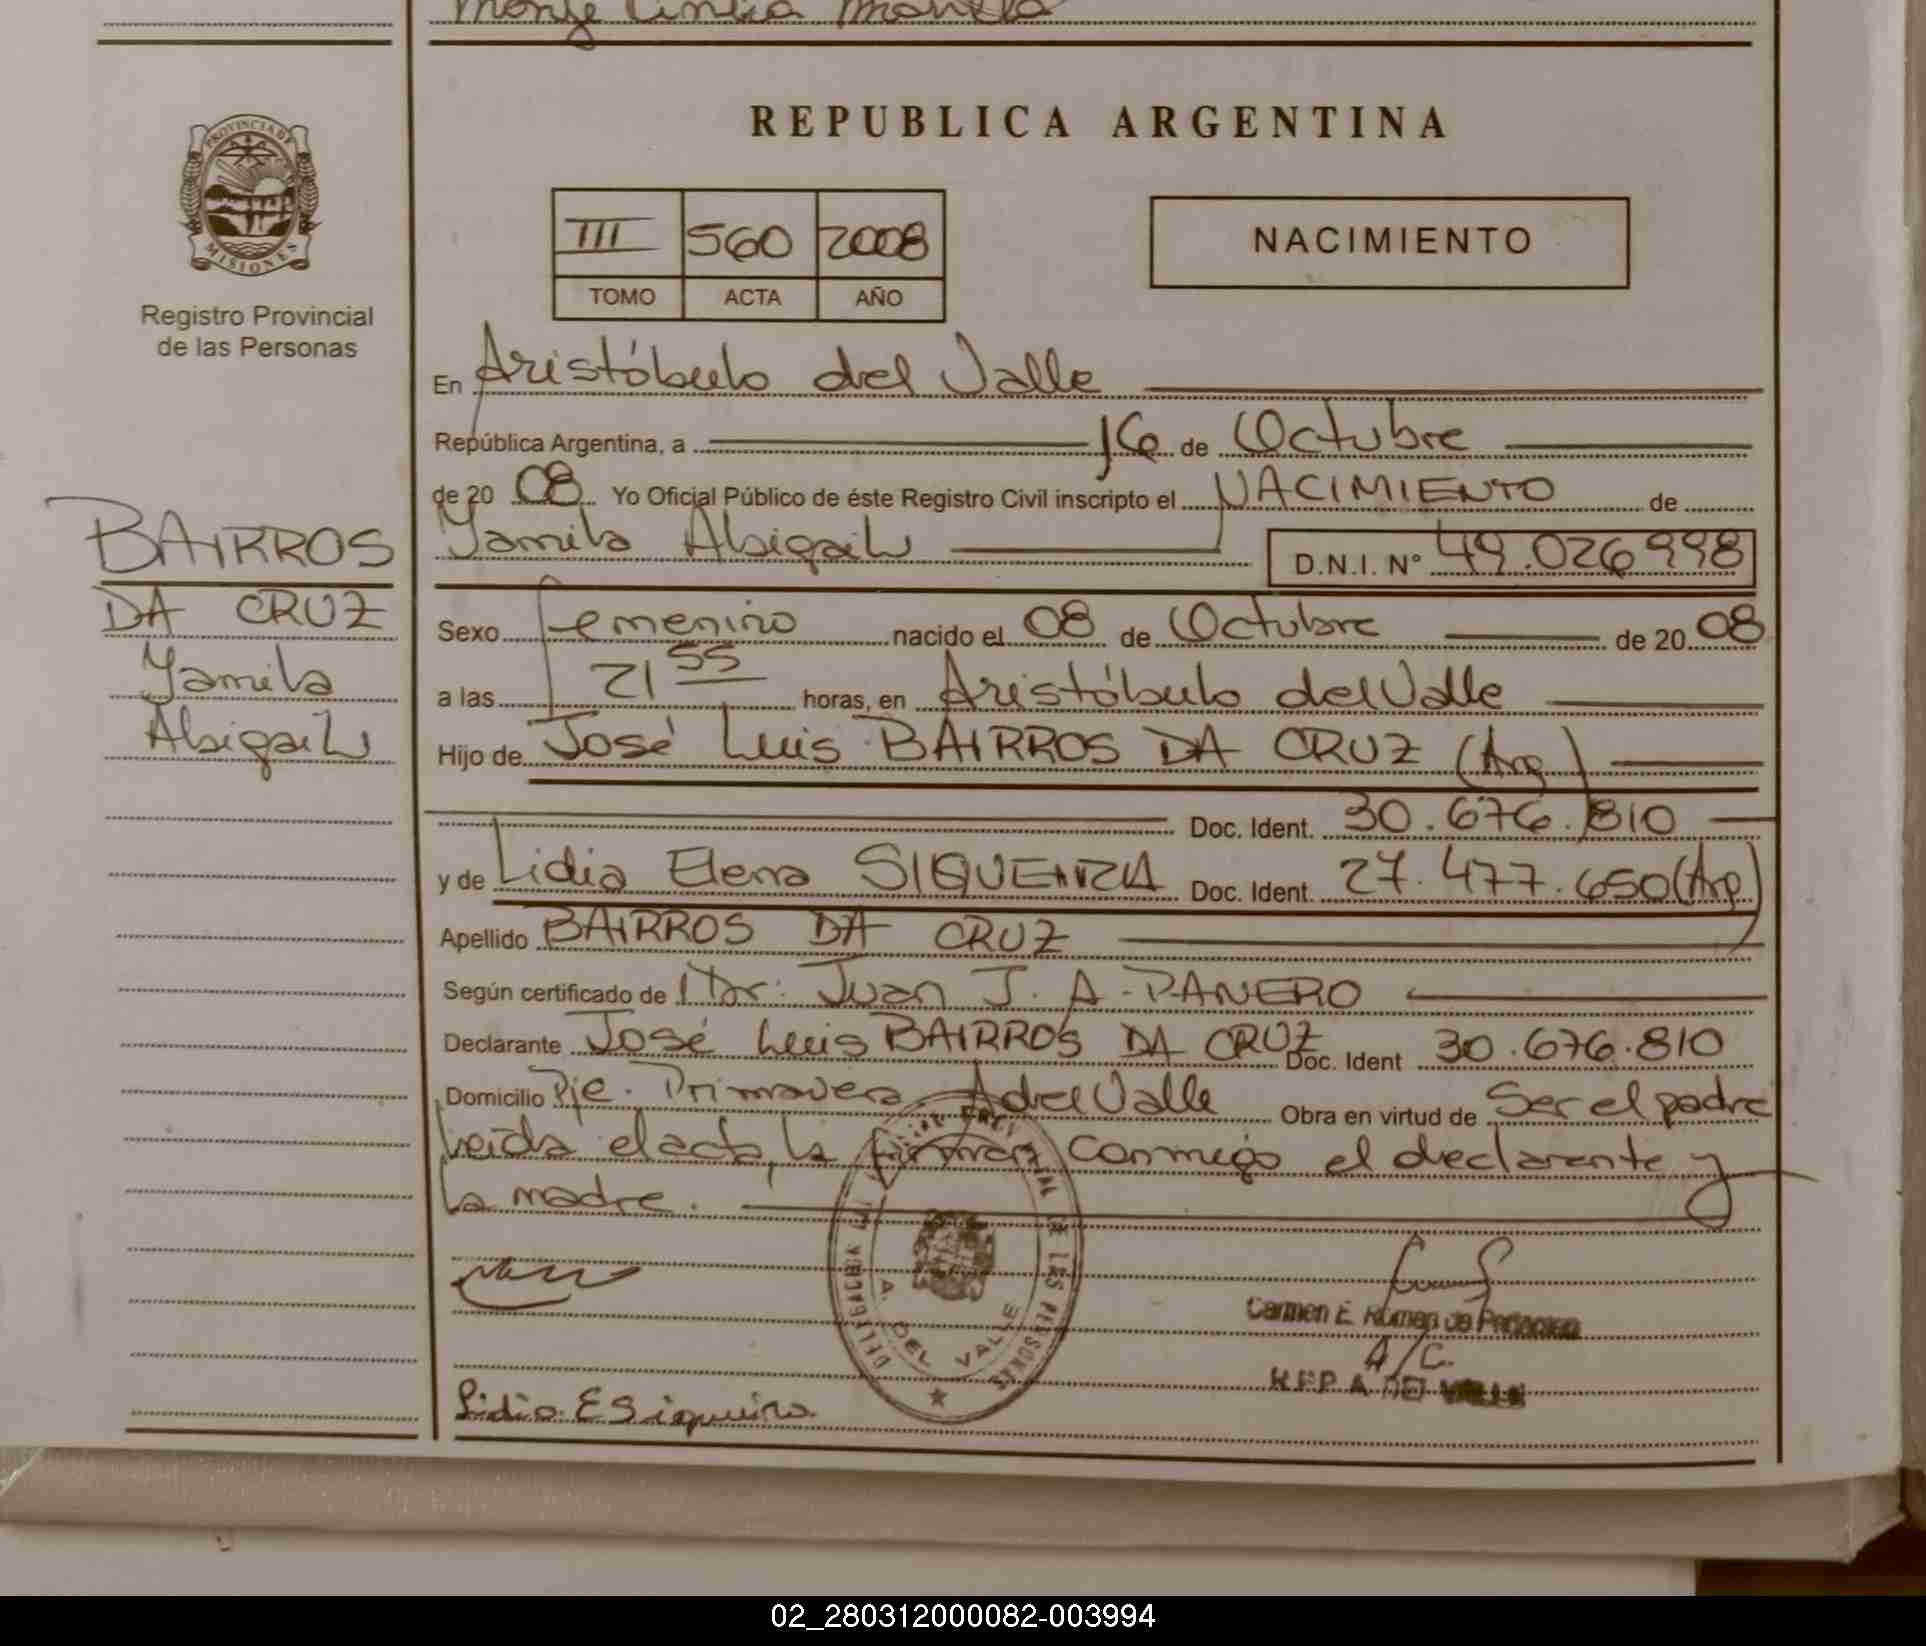 Monje Cintia Mariela
PROVINCIA DE
MISIONES
Registro Provincial
de las Personas
BAIRROS
DA CRUZ
Yamila
Abigail
REPUBLICA ARGENTINA
III 560 2008
TOMO ACTA AÑO
NACIMIENTO
En Aristóbulo del Valle
República Argentina, a 16 de Octubre
de 20 08 Yo Oficial Público de éste Registro Civil inscripto el NACIMIENTO de
Yamila Abigail D.N.I. N° 49.026998
Sexo femenino nacido el 08 de Octubre de 20 08
a las 21 55 horas, en Aristóbulo del Valle
Hijo de José Luis BAIRROS DA CRUZ (Arg)
Doc. Ident. 30.676.810
y de Lidia Elena SIQUEIRA Doc. Ident. 27.477.650 (Arg)
Apellido BAIRROS DA CRUZ
Según certificado de Dr. Juan J. A. PANERO
Declarante José Luis BAIRROS DA CRUZ Doc. Ident 30.676.810
Domicilio Pje. Primavera A del Valle Obra en virtud de Ser el padre
Leída el acta, la firman conmigo el declarante y
la madre.
DELEGACION
DE LAS PERSONAS
A. DEL VALLE
Carmen E. Roman de
A/C.
Lidia E Siqueira
02_280312000082-003994